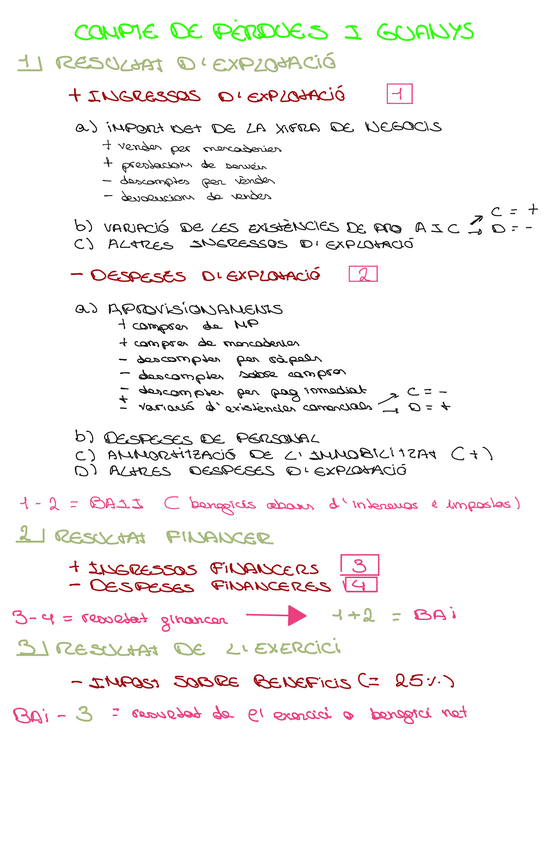 COMPTE DE PÈRDUES I GUANYS
1) RESULTAT D'EXPLOTACIÓ
+ INGRESSOS D'EXPLOTACIÓ 1
a) IMPORT NET DE LA XIFRA DE NEGOCIS
+ vendes per mercaderies
+ prestacions de serveis
- descomptes per vendes
- devolucions de vendes
b) VARIACIÓ DE LES EXISTÈNCIES DE PRO A I C → C = + → D = -
C) ALTRES INGRESSOS D'EXPLOTACIÓ
- DESPESES D'EXPLOTACIÓ 2
a) APROVISIONAMENTS
+ compres de MP
+ compres de mercaderies
- descomptes per ràpels
- descomptes sobre compres
- descomptes per pag inmediat
± variació d'existències comercials → C = - → D = +
b) DESPESES DE PERSONAL
C) AMMORTITZACIÓ DE L'IMMOBILITZAT (+)
D) ALTRES DESPESES D'EXPLOTACIÓ
1 - 2 = BAII (beneficis abans d'interessos i impostos)
2) RESULTAT FINANCER
+ INGRESSOS FINANCERS 3
- DESPESES FINANCERES 4
3-4 = resultat financer → 1+2 = BAi
3) RESULTAT DE L'EXERCICI
- IMPOST SOBRE BENEFICIS (= 25%)
BAi - 3 = resultat de l'exercici o benefici net